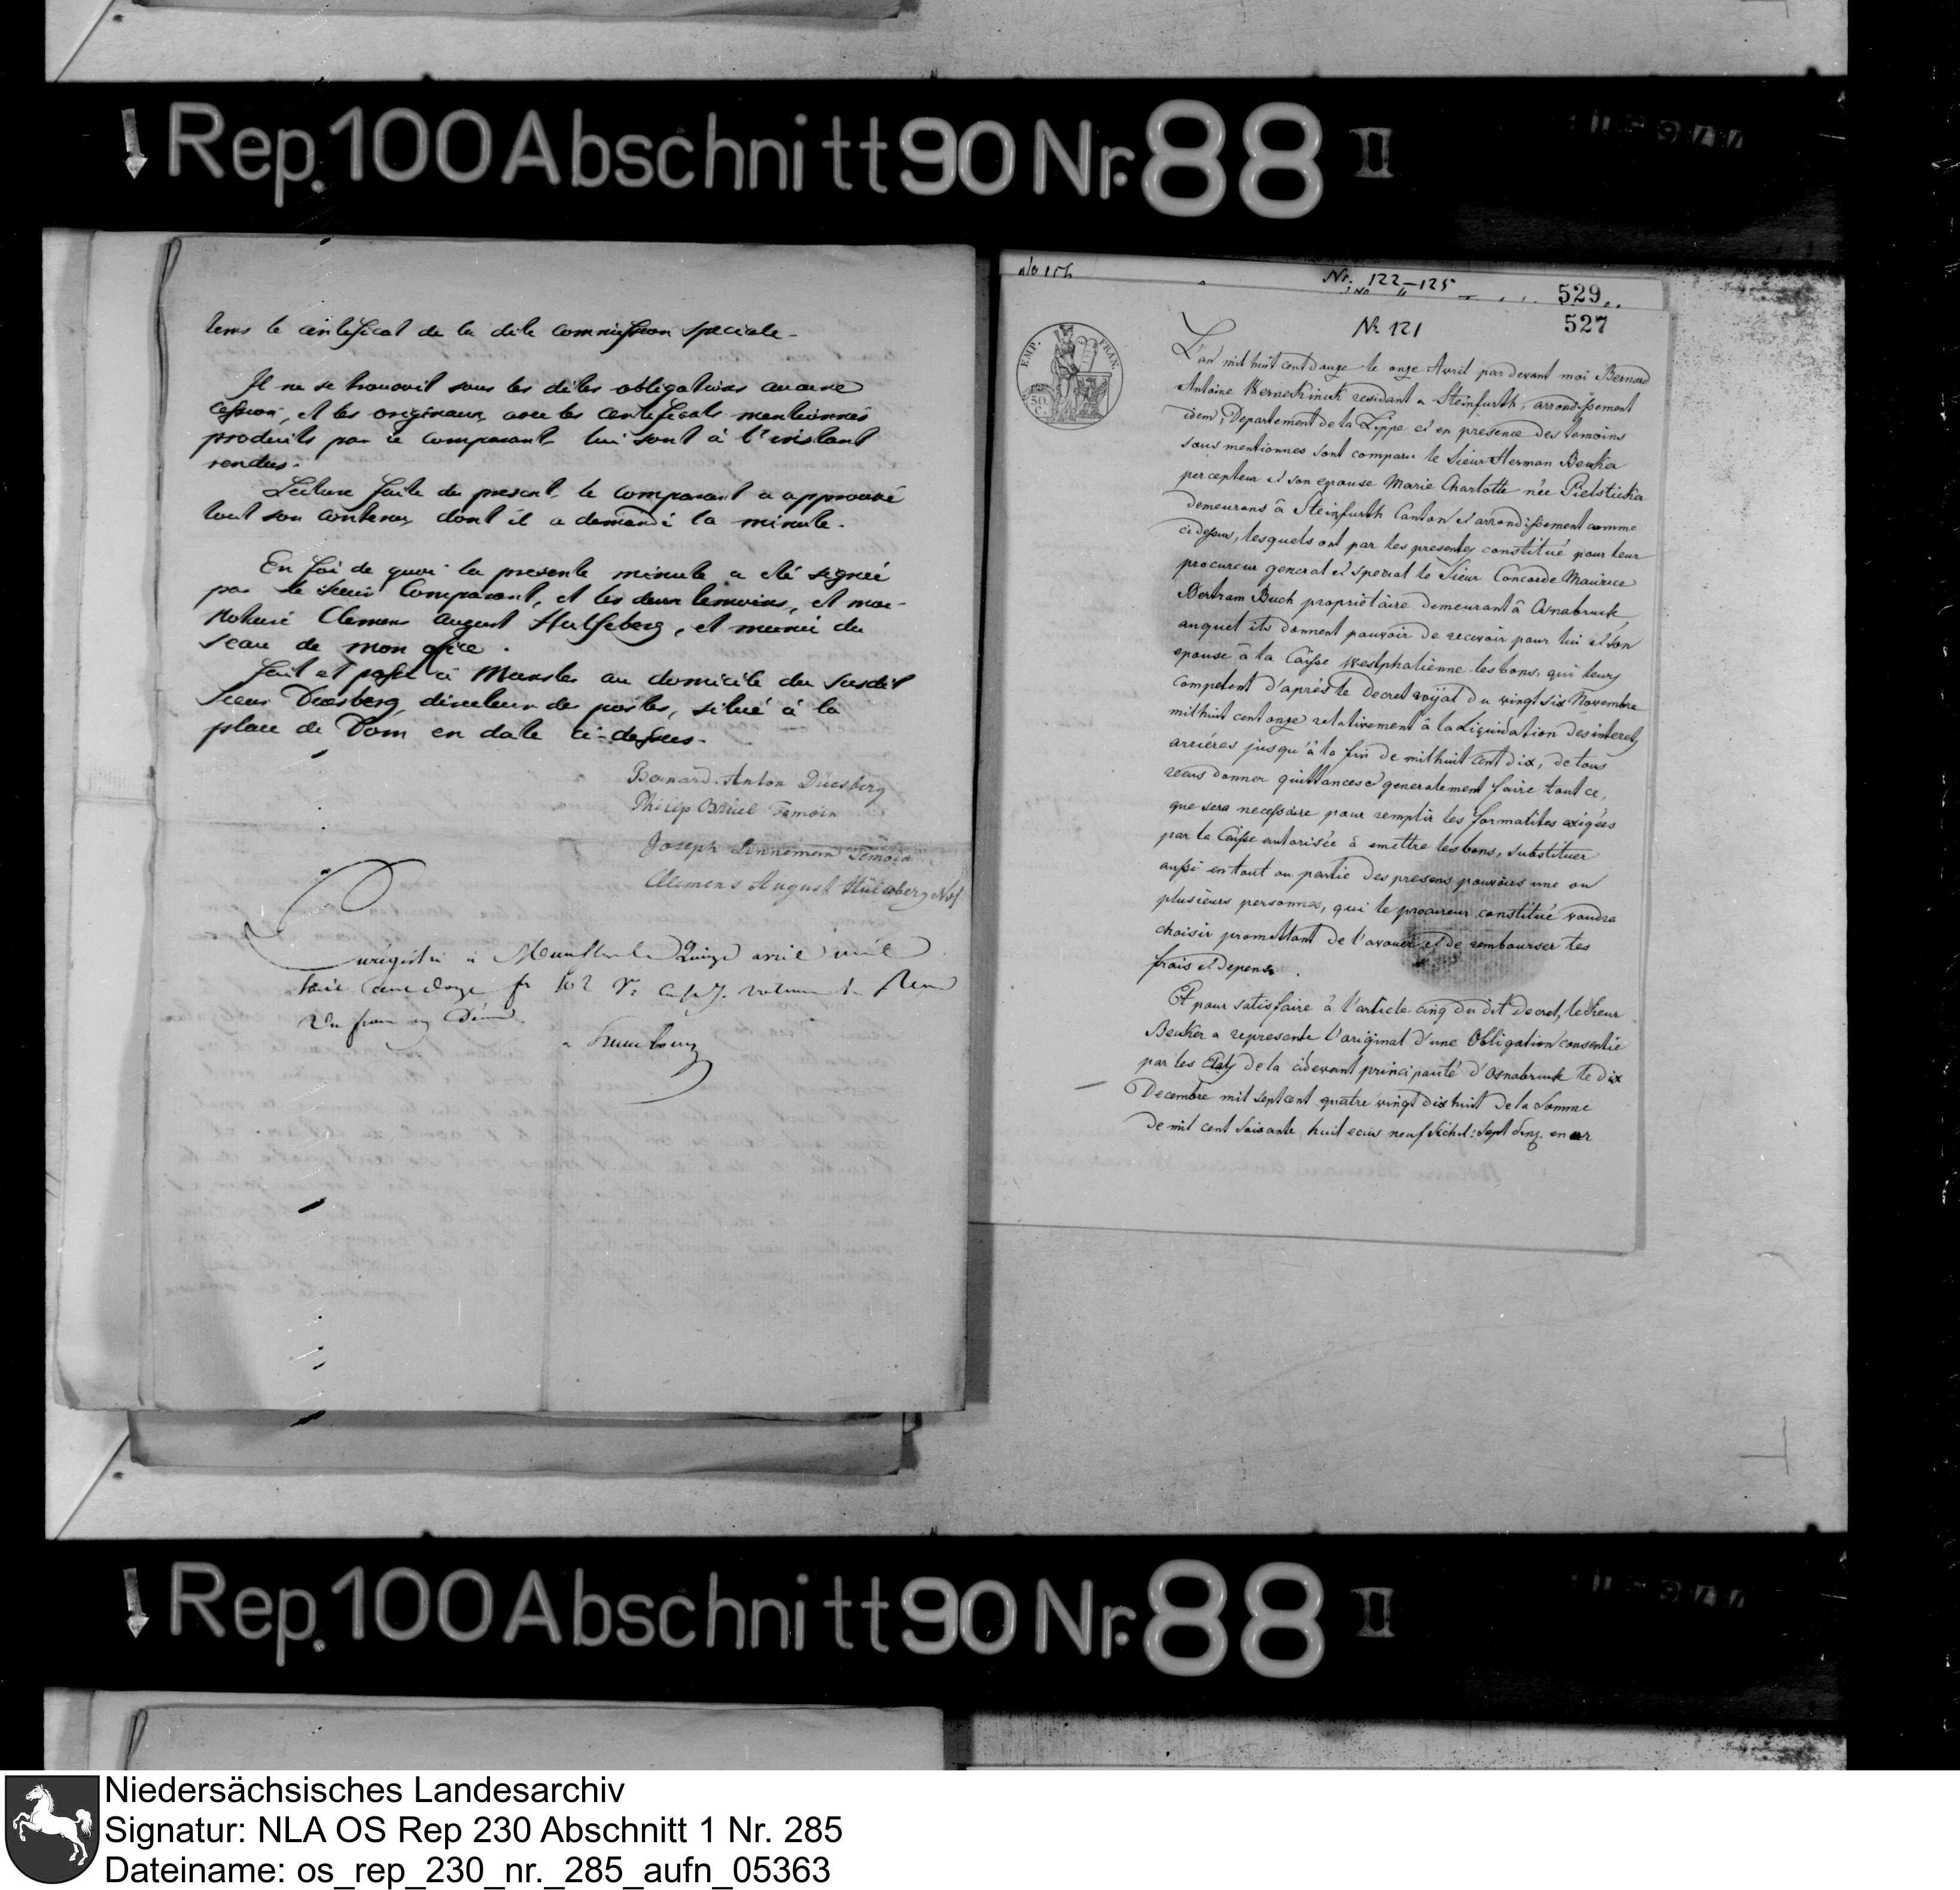 Rep. 100 Abschnitt 90 Nr. 88 II
tens le certificat de la dite commission speciale.
Il ne se trouvoit sous les dites obligations aucune
cession, et les originaux avec les certificats mentionnés
produits par ce comparant lui sont à l'instant
rendus.
Lecture faite du present, le comparant a approuvé
tout son contenu, dont il a demandé la minute.
En foi de quoi la presente minute a été signée
par le sieur Comparant, et les deux temoins, et moi
Notaire Clemens August Hulsberg, et munie du
seau de mon office.
Fait et passé à Munster au domicile du susdit
Sieur Duesberg, directeur de postes, situé à la
place de Dom en date ci-dessus.
Bernard Anton Düesberg
Philip Brüel Temoin
Joseph Linnemann Temoin
Clemens August Hülsberg Not.
Enregistré à Munster le Quinze avril mil
huit cent douze fo 162 Vo
Un franc
Nr. 122-125
529
527
Nr. 121
EMP. FRAN.
50 C.
L'an mil huit cent douze le onze Avril par devant moi Bernard
Antoine Wernekinck residant a Steinfurth, arrondissement
idem, Departement de la Lippe et en presence des temoins
sous mentionnes sont comparu le Sieur Herman Beuker
percepteur et son epouse Marie Charlotte née Pielsticker
demeurans â Steinfurth Canton et arrondissement comme
ci dessus, lesquels ont par les presentes constitué pour leur
procureur general et special le Sieur Concorde Maurice
Bertram Buch proprietaire demeurant â Osnabruck,
auquel ils donnent pouvoir de recevoir pour lui et son
epouse â la Caisse Westphalienne les bons, qui leurs
competent d'après le Decret royal du vingt six Novembre
mil huit cent onze relativement â la Liquidation des interets
arriéres jusqu'â la fin de mil huit cent dix, de tous
recus donner quittances et generalement faire tout ce,
que sera necessaire pour remplir les formalites exigées
par la Caisse autorisée à emettre les bons, substituer
aussi en tout ou partie des presens pouvoirs une ou
plusieurs personnes, qui le procureur constitué voudra
choisir promettant de l'avouer et de rembourser les
frais et depens.
Et pour satisfaire â l'article cinq du dit Decret, le Sieur
Beuker a represente l'original d'une Obligation consentie
par les Etats de la cidevant principauté d'Osnabruck le dix
Decembre mil sept cent quatre vingt dix huit de la Somme
de mil cent soixante huit ecus neuf Schel: sept fenz. en or
Rep. 100 Abschnitt 90 Nr. 88 II
Niedersächsisches Landesarchiv
Signatur: NLA OS Rep 230 Abschnitt 1 Nr. 285
Dateiname: os_rep_230_nr._285_aufn_05363